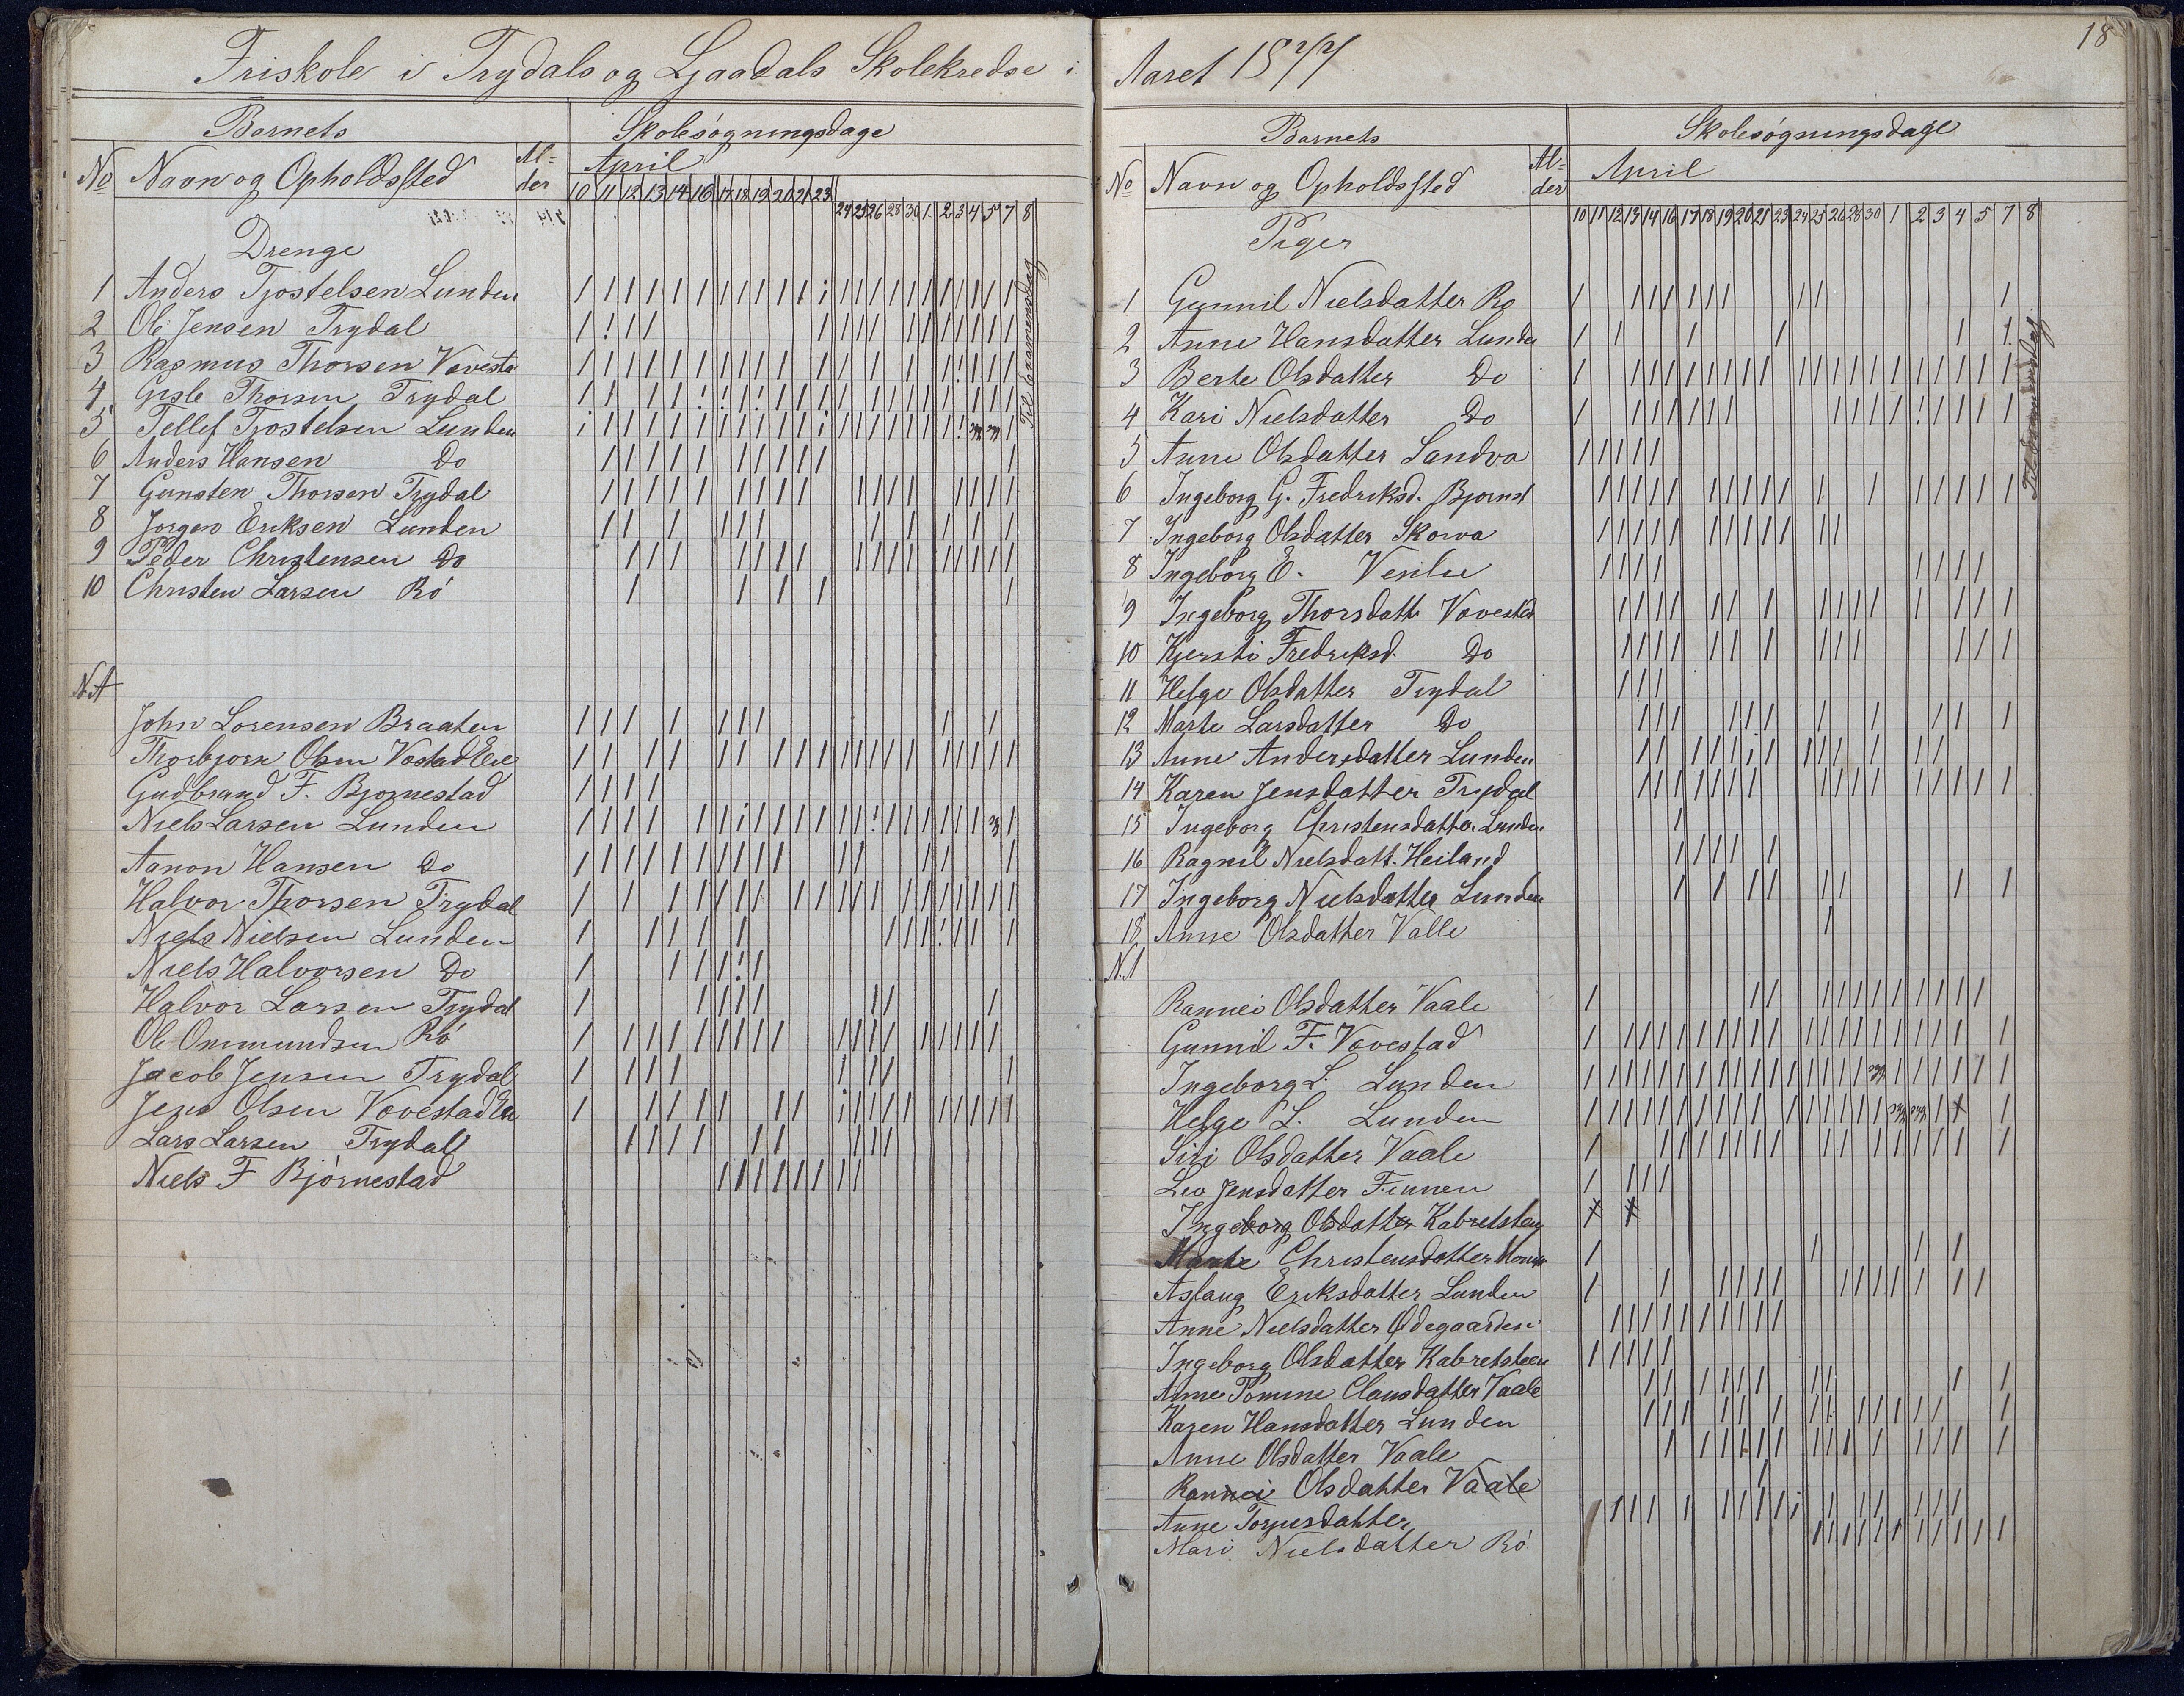 Friskole i Trydals og Ljaadals Skolekredse i
Barnets
Skolesøgningsdage
No
Navn og Opholdssted
Al=
der
April
10 11 12 13 14 16 17 18 19 20 21 23 24 25 26 28 30 1 2 3 4 5 7 8
Drenge
Til Examensdag
1 Anders Tjostelsen Lunden
2 Ole Jensen Trydal
3 Rasmus Thorsen Vovesta
4 Gisle Thorsen Trydal
5 Tellef Tjostelsen Lunden
6 Anders Hansen Do
7 Gunsten Thorsen Trydal
8 Jørgen Eriksen Lunden
9 Peder Christensen Do
10 Christen Larsen Rø
N.A
John Lorensen Braaten
Thorbjørn Olsen Vostad
Gudbrand F. Bjornestad
Niels Larsen Lunden
Aanon Hansen Do
Halvor Thorsen Trydal
Niels Nielsen Lunden
Niels Halvorsen Do
Halvor Larsen Trydal
Ole Ommundsen Rø
Jacob Jensen Trydal
Jens Olsen Vovestad
Lars Larsen Trydal
Niels F Bjørnestad
18
Aaret 1877
Barnets
Skolesøgningsdage
No
Navn og Opholdssted
Al=
der
April
10 11 12 13 14 16 17 18 19 20 21 23 24 25 26 28 30 1 2 3 4 5 7 8
Piger
1 Gunnil Nielsdatter Ro
2 Anne Hansdatter Lunde
3 Berte Olsdatter Do
4 Kari Nielsdatter Do
5 Anne Olsdatter Sandva
6 Ingeborg G. Fredriksd. Bjornst
7 Ingeborg Olsdatter Skowa
8 Ingeborg E.
9 Ingeborg Thorsdatt Vovestad
10 Kjersti Fredriksd. Do
11 Helge Olsdatter Trydal
12 Marte Larsdatter Do
13 Anne Andersdatter Lunden
14 Karen Jensdatter Trydal
15 Ingeborg Christensdatter Lunden
16 Ragnil Nielsdatt. Heiland
17 Ingeborg Nielsdatter Lunden
18 Anne Olsdatter Valle
N.A
Rannei Olsdatter Vaale
Gunnil F. Vovestad
Ingeborg L. Lunden
Helge L. Lunden
Siri Olsdatter Vaale
Lea Jensdatter Finnen
Ingeborg Olsdatter Kabretsteen
Marte Christensdatter
Aslaug Eriksdatter Lunden
Anne Nielsdatter Ødegaarden
Ingeborg Olsdatter Kabretsteen
Anne Tomine Clausdatter Vaale
Karen Hansdatter Lunden
Anne Olsdatter Vaale
Rannei Olsdatter Vaale
Anne Torjusdatter
Mari Nielsdatter Rø